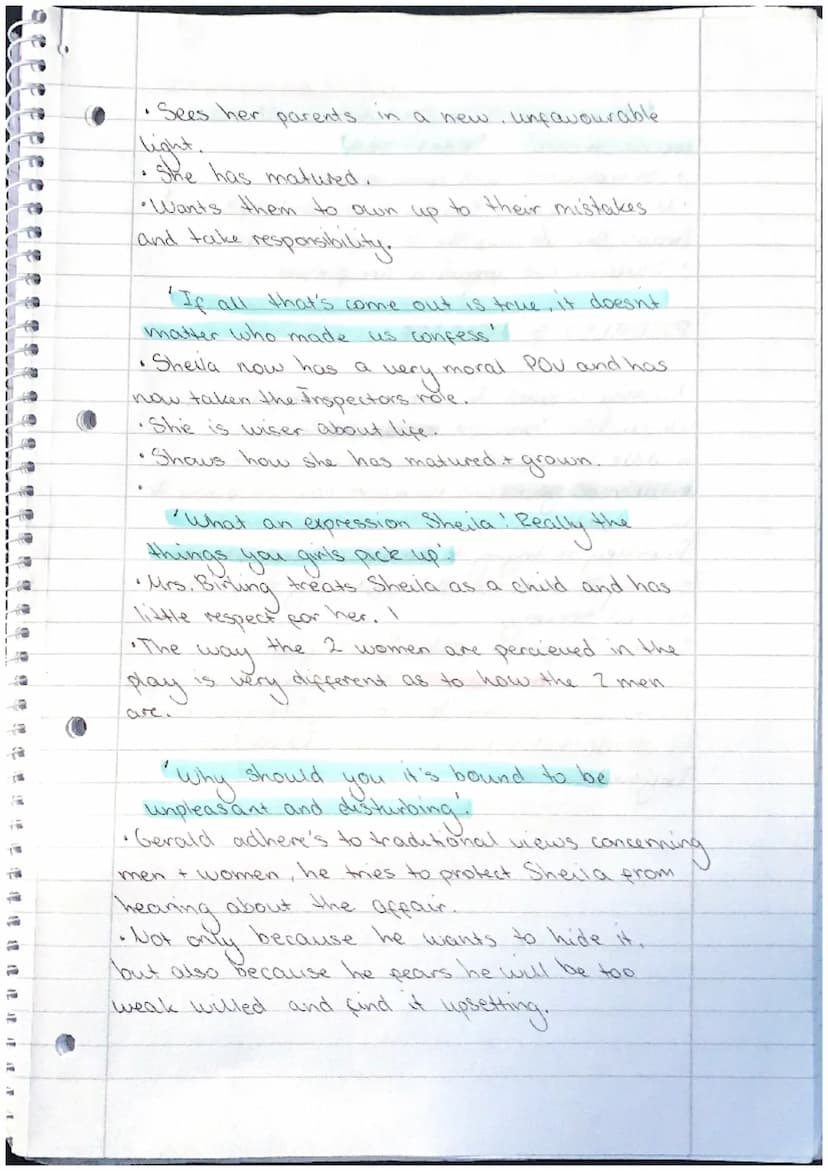 · Sees her parents in a new, unfavourable
light.
· She has matured.
· Wants them to own up to their mistakes
and take responsibility.
'If all that's come out is true, it doesn't
matter who made us confess'
· Sheila now has a very moral POV and has
now taken the Inspectors role.
· She is wiser about life.
· Shows how she has matured + grown.
·
'What an expression Sheila! Really the
things you girls pick up'.
· Mrs. Birling treats Sheila as a child and has
little respect for her.
· The way the 2 women are percieved in the
play is very different as to how the 2 men
are.
'Why should you it's bound to be
unpleasant and disturbing'.
· Gerald adhere's to traditional views concerning
men + women, he tries to protect Sheila from
hearing about the affair.
· Not only because he wants to hide it,
but also because he fears he will be too
weak willed and find it upsetting.